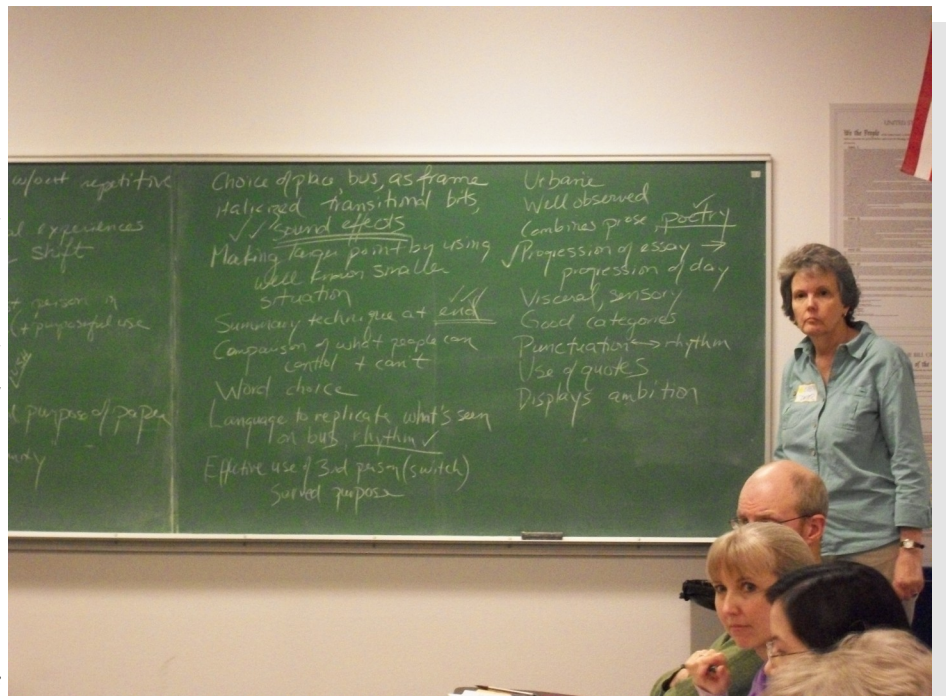 w/out repetitive
experiences
shift
person in
purposeful use
purpose of paper
Choice of place, bus, as frame
italicized transitional bits,
✓✓ sound effects
Making larger point by using
well known smaller
situation
Summary technique at end
Comparison of what people can
control + can't
Word choice
Language to replicate what's seen
on bus rhythm ✓
Effective use of 3rd person (switch)
Served purpose
Urbane
Well observed
Combines prose, poetry
✓ Progression of essay →
progression of day
Visceral, sensory
Good categories
Punctuation ↔ rhythm
Use of quotes
Displays ambition
We the People